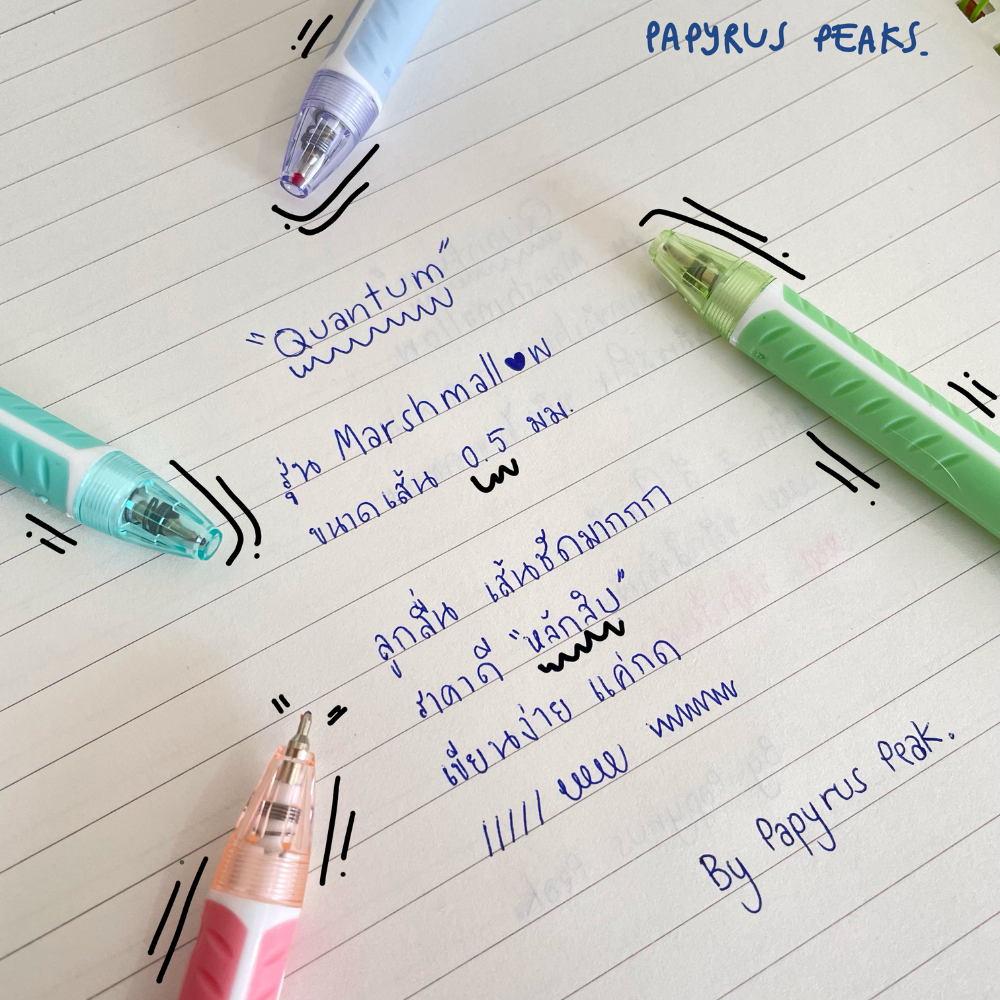 PAPYRUS PEAKS.
"Quantum"
รุ่น Marshmall♥w
ขนาดเส้น 0.5 มม.
ลูกลื่น เส้นชัดมากกกก
ราคาดี "หลักสิบ"
เขียนง่าย แค่กด
By Papyrus Peak.